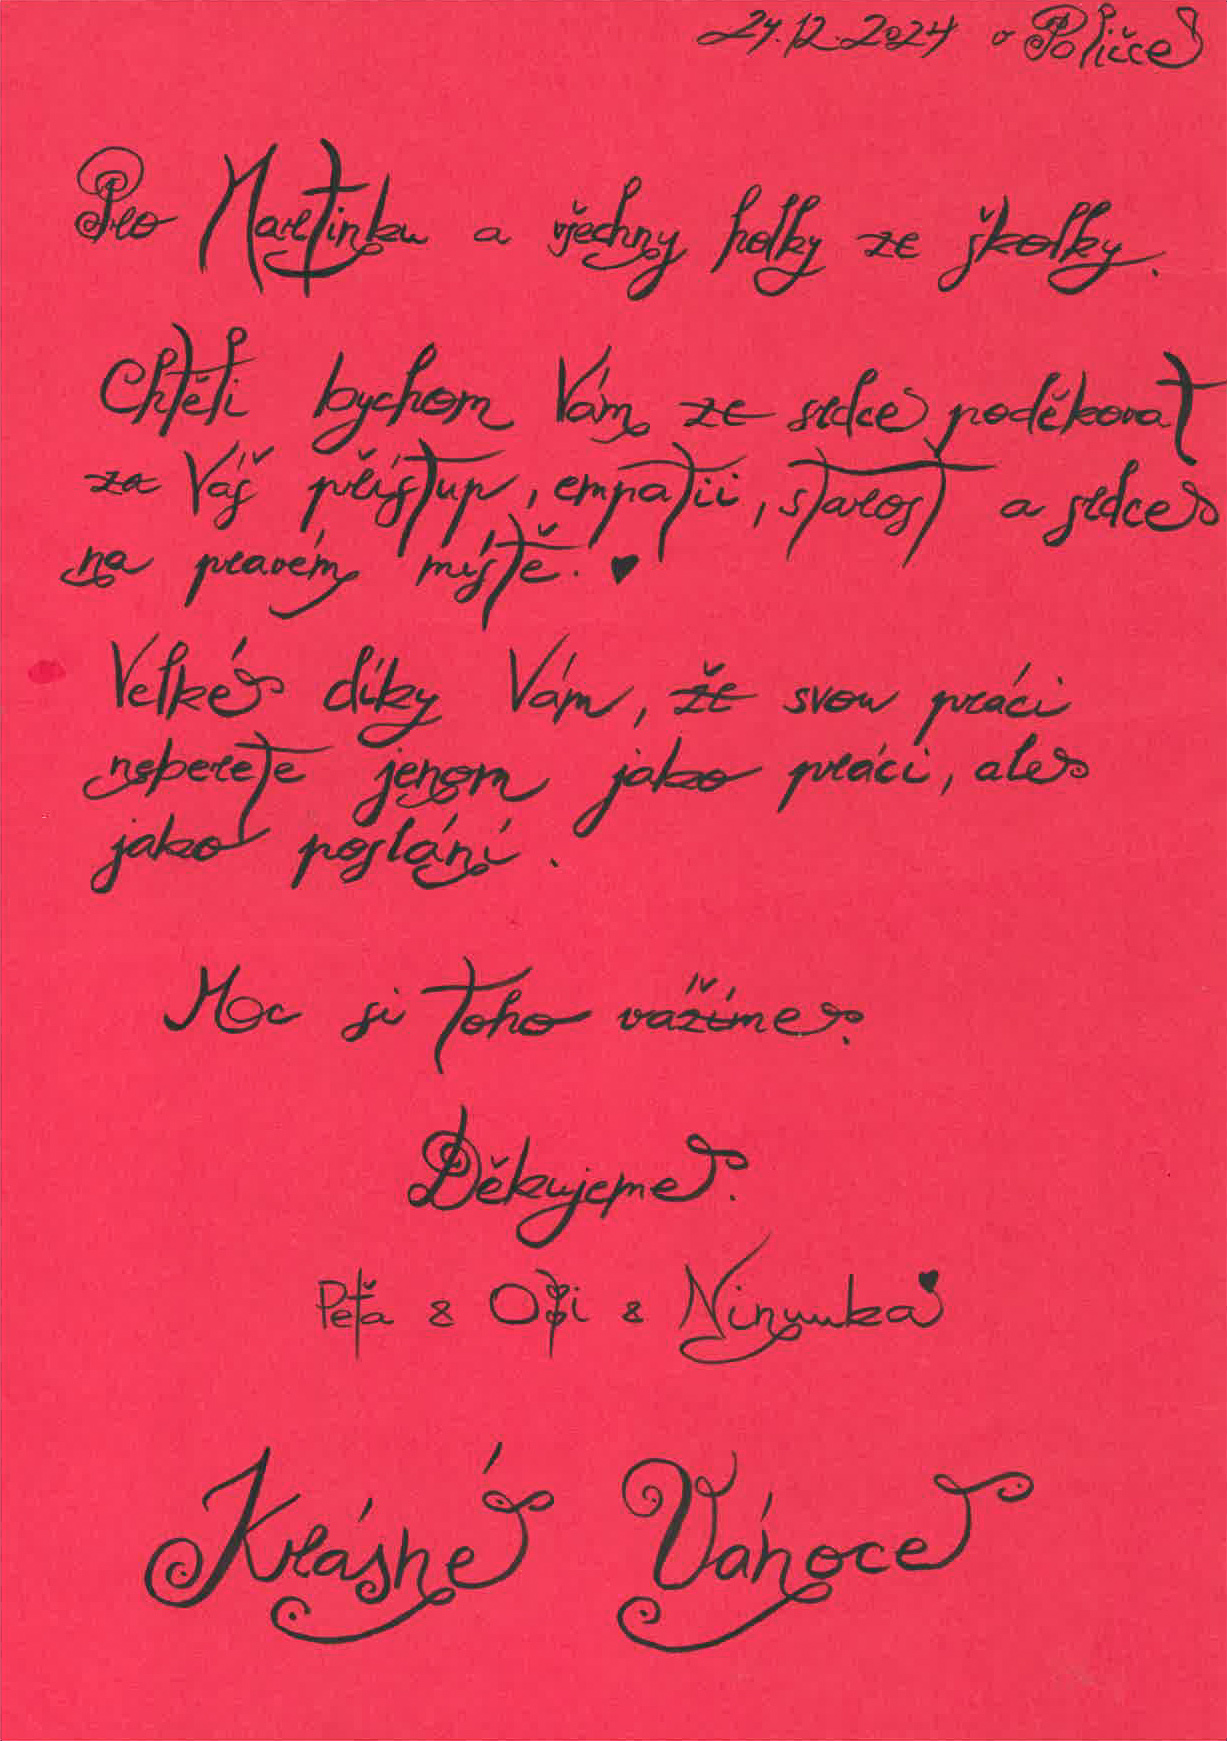 24.12.2024 v Poličce
Pro Martinku a všechny holky ze školky.
Chtěli bychom Vám ze srdce poděkovat
za Váš přístup, empatii, starost a srdce
na pravém místě. ♥
Velké díky Vám, že svou práci
neberete jenom jako práci, ale
jako poslání.
Moc si toho vážíme.
Děkujeme.
Peťa & & Ninuuka
Krásné Vánoce